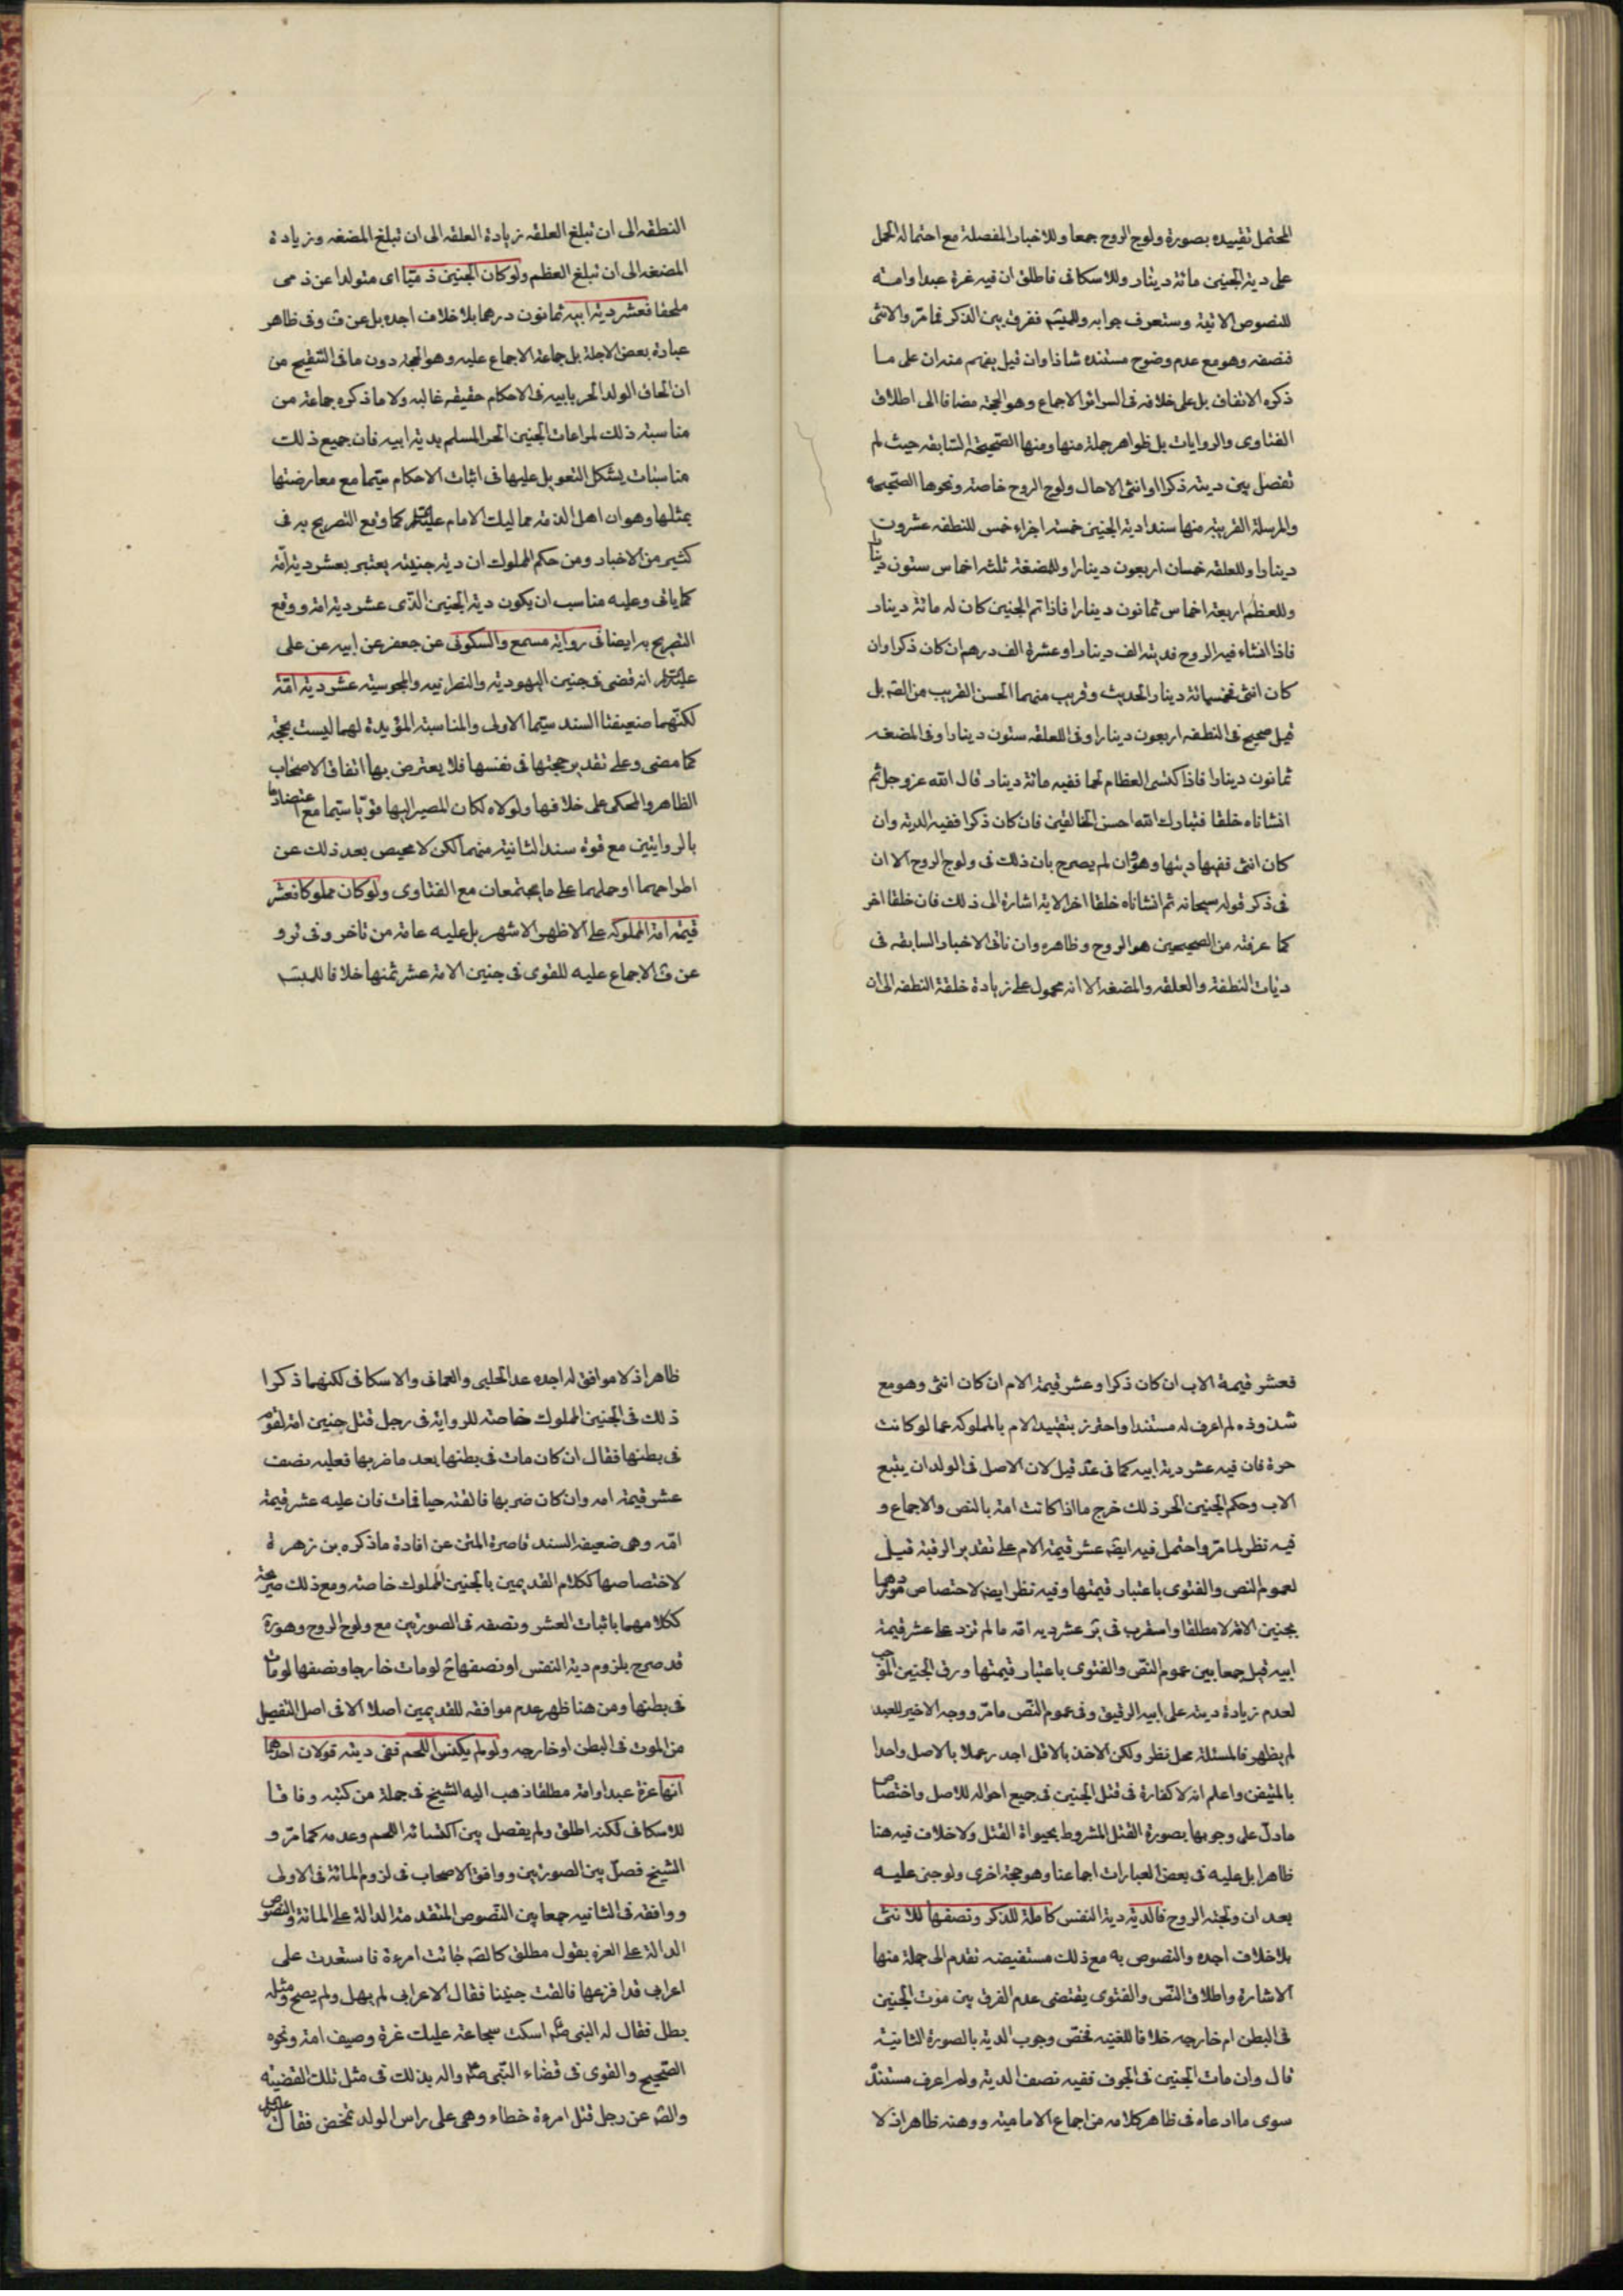 المحتمل تقييده بصورة ولوج الروح جمعا وللاخبار المفصلة مع احتماله الحمل
على دية الجنين مائة دينار وللاسكافى فاطلق ان فيه غرة عبدا وامة
للنصوص الاتية وستعرف جوابه وللمبسَم ففرق بين الذكر فمامرّ والانثى
فنصفه وهو مع عدم وضوح مستنده شاذ وان قيل يفهم منه ان على ما
ذكره الاتفاق بل على خلافه فى السرائر الاجماع وهو الحجة مضافا الى اطلاق
الفتاوى والروايات بل ظواهر جملة منها ومنها الصحيحة السابقه حيث لم
تفصل بين ديته ذكرا او انثى الا حال ولوج الروح خاصة ونحوها الصحيحه
والمرسلة القريبة منها سندا دية الجنين خمسة اجزاء خمس للنطفه عشرون
دينارا وللعلقه خمسان اربعون دينارا وللمضغة ثلثه اخماس ستون دينارا
وللعظم اربعة اخماس ثمانون دينارا فاذا تم الجنين كان له مائة دينار
فاذا انشاء فيه الروح فديته الف دينار او عشرة الف درهم ان كان ذكرا وان
كان انثى فخمسمائة دينار الحديث وقريب منهما الحسن القريب من الصَه بل
قيل صحيح فى النطفه اربعون دينارا وفى العلقه ستون دينارا وفى المضغه
ثمانون دينارا فاذا كتسى العظام لحما ففيه مائة دينار قال الله عزوجل ثم
انشاناه خلقا فتبارك الله احسن الخالقين فان كان ذكرا ففيه الدية وان
كان انثى ففيها ديتها وهو ان لم يصرح بان ذلك فى ولوج الروح الا ان
فى ذكر قوله سبحانه ثم انشاناه خلقا اخر الاية اشارة الى ذلك فان خلقا اخر
كما عرفته من الصحيحين هو الروح وظاهره وان نافى الاخبار السابقه فى
ديات النطفة والعلقه والمضغه الا انه محمول على زيادة خلقة النطفه الى ان
النطفه الى ان تبلغ العلقه زيادة العلقه الى ان تبلغ المضغه وزيادة
المضغه الى ان تبلغ العظم ولو كان الجنين ذميّا اى متولدا عن ذمى
ملحقا فعشر دية ابيه ثمانون درهما بلا خلاف اجده بل عن ف وفى ظاهر
عبارة بعض الاجلة بل جماعة الاجماع عليه وهو الحجة دون مافى التنقيح من
ان الحاق الولد الحر بابيه فى الاحكام حقيقه غالبه ولا ما ذكره جماعة من
مناسبة ذلك لمراعات الجنين الحر المسلم بدية ابيه فان جميع ذلك
مناسبات يشكل التعويل عليها فى اثبات الاحكام سيّما مع معارضتها
بمثلها وهو ان اهل الذمة مماليك الامام عليهم كما وقع التصريح به فى
كثير من الاخبار ومن حكم المملوك ان دية جنينه يعتبر بعشر دية امّه
كما ياتى وعليه مناسب ان يكون دية الجنين الذى عشر دية امه ووقع
التصريح به ايضا فى رواية مسمع والسكونى عن جعفر عن ابيه عن على
عليهم انه قضى فى جنين اليهودية والنصرانيه والمجوسية عشر دية امّه
لكنّهما ضعيفتا السند سيّما الاولى والمناسبة المؤيدة لهما ليست بحجّة
كما مضى وعلى تقدير حجتها فى نفسها فلا يعترض بها اتفاق الاصحاب
الظاهر والمحكى على خلافها ولولاه لكان المصير اليها قويّا سيّما مع اعتضادها
بالروايتين مع قوة سند الثانية منهما لكن لا محيص بعد ذلك عن
اطراحهما او حملهما على ما يجتمعان مع الفتاوى ولو كان مملوكا فعشر
قيمة امه المملوكه على الاظهر الاشهر بل عليه عامة من تاخر وفى ئر و
عن ف الاجماع عليه للقوى فى جنين الامة عشر ثمنها خلافا للمبسَم
فعشر قيمة الاب ان كان ذكرا وعشر قيمة الام ان كان انثى وهو مع
شذوذه لم اعرف له مستندا واحترز بتقييد الام بالمملوكه عما لو كانت
حرة فان فيه عشر دية ابيه كما فى عدَ قيل لان الاصل فى الولد ان يتبع
الاب وحكم الجنين الحر ذلك خرج ما اذا كانت امة بالنص والاجماع و
فيه نظر لما مرّ واحتمل فيه ايضَه عشر قيمة الام على تقدير الرقية قيل
لعموم النص والفتوى باعتبار قيمتها وفيه نظر ايضَه لاختصاص موردهما
بجنين الامة لا مطلقا واستقرب فى ير عشر ديه امّه ما لم تزد على عشر قيمة
ابيه قيل جمعا بين عموم النصّ والفتوى باعتبار قيمتها ورق الجنين الموجب
لعدم زيادة ديته على ابيه الرقيق وفى عموم النّص مامرّ ووجه الاخير للعبد
لم يظهر فالمسئلة محل نظر ولكن الاخذ بالاقل اجدر عملا بالاصل واخذا
بالمتيقن واعلم انه لا كفارة فى قتل الجنين فى جميع احواله للاصل واختصاص
مادلّ على وجوبها بصورة القتل المشروط بحيواة القتل ولا خلاف فيه هنا
ظاهرا بل عليه فى بعض العبارات اجماعنا وهو حجة اخرى ولو جنى عليه
بعد ان ولجته الروح فالدية دية النفس كاملة للذكر ونصفها للانثى
بلا خلاف اجده والنصوص به مع ذلك مستفيضه تقدم الى جملة منها
الاشارة واطلاق النّص والفتوى يقتضى عدم الفرق بين موت الجنين
فى البطن ام خارجه خلافا للغنيه فخصّ وجوب الدية بالصورة الثانية
قال وان مات الجنين فى الجوف ففيه نصف الدية ولم اعرف مستنده
سوى ما ادعاه فى ظاهر كلامه من اجماع الامامية ووهنه ظاهر اذ لا
ظاهر اذ لا موافق له اجده عدا الحلبى والعمانى والاسكافى لكنهما ذكرا
ذلك فى الجنين المملوك خاصته للرواية فى رجل قتل جنين امة لقوم
فى بطنها فقال ان كان مات فى بطنها بعد ما ضربها فعليه نصف
عشر قيمة امه وان كان ضربها فالقته حيا فمات فان عليه عشر قيمة
امّه وهى ضعيفه السند قاصرة المتن عن افادة ما ذكره بن زهرة
لاختصاصها ككلام القديمين بالجنين المملوك خاصته ومع ذلك صريحة
ككلامهما باثبات العشر ونصفه فى الصورتين مع ولوج الروح وهو
قد صرح بلزوم دية النفس او نصفها حَ لو مات خارجا ونصفها لو مات
فى بطنها ومن هنا ظهر عدم موافقه للقديمين اصلا الا فى اصل التفصيل
من الموت فى البطن او خارجه ولو لم يكتس اللحم ففى ديته قولان احدهما
انها غرة عبد او امة مطلقا ذهب اليه الشيخ فى جملة من كتبه وفاقا
للاسكافى لكنه اطلق ولم يفصل بين اكتسائه اللحم وعدمه كما مرّ و
الشيخ فصلّ بين الصورتين ووافق الاصحاب فى لزوم المائة فى الاولى
ووافقه فى الثانيه جمعا بين النّصوص المتقدمة الدالة على المائة والنصوص
الدالة على الغرة بقول مطلق كالصَه جائت امرءة فاستعدت على
اعرابى قد افزعها فالقت جنينا فقال الاعرابى لم يهل ولم يصح ومثله
يطل فقال له النبى صَم اسكت سجاعة عليك غرة وصيف امة ونحوه
الصّحيح والقوى فى قضاء النّبى صَم واله بذلك فى مثل تلك القضيّة
والصَه عن رجل قتل امرءة خطاء وهى على راس الولد تمخض فقال